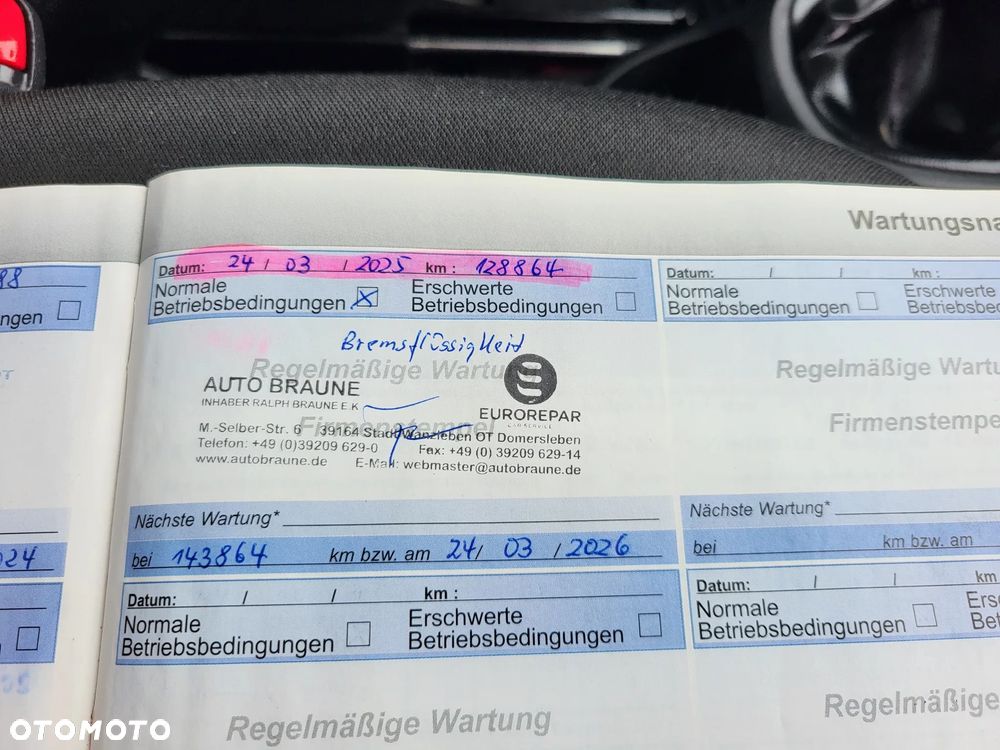 Wartungsna
88
ngen
024
Datum: 24 / 03 / 2025 km : 128864
Normale
Betriebsbedingungen
Erschwerte
Betriebsbedingungen
Bremsflüssigkeit
Regelmäßige Wartung
AUTO BRAUNE
INHABER RALPH BRAUNE E.K
EUROREPAR
CAR SERVICE
Firmenstempel
M.-Selber-Str. 6 39164 Stadt Wanzleben OT Domersleben
Telefon: +49 (0)39209 629-0 Fax: +49 (0) 39209 629-14
www.autobraune.de E-Mail: webmaster@autobraune.de
Nächste Wartung*
bei 143864 km bzw. am 24/ 03 / 2026
Datum: / / km :
Normale
Betriebsbedingungen
Erschwerte
Betriebsbedingungen
Regelmäßige Wartung
Datum: / / km :
Normale
Betriebsbedingungen
Erschwerte
Betriebsbed
Regelmäßige Wartu
Firmenstempe
Nächste Wartung*
bei km bzw. am
Datum: / / km
Normale
Betriebsbedingungen
Ers
Bet
Regelmäßige
OTOMOTO